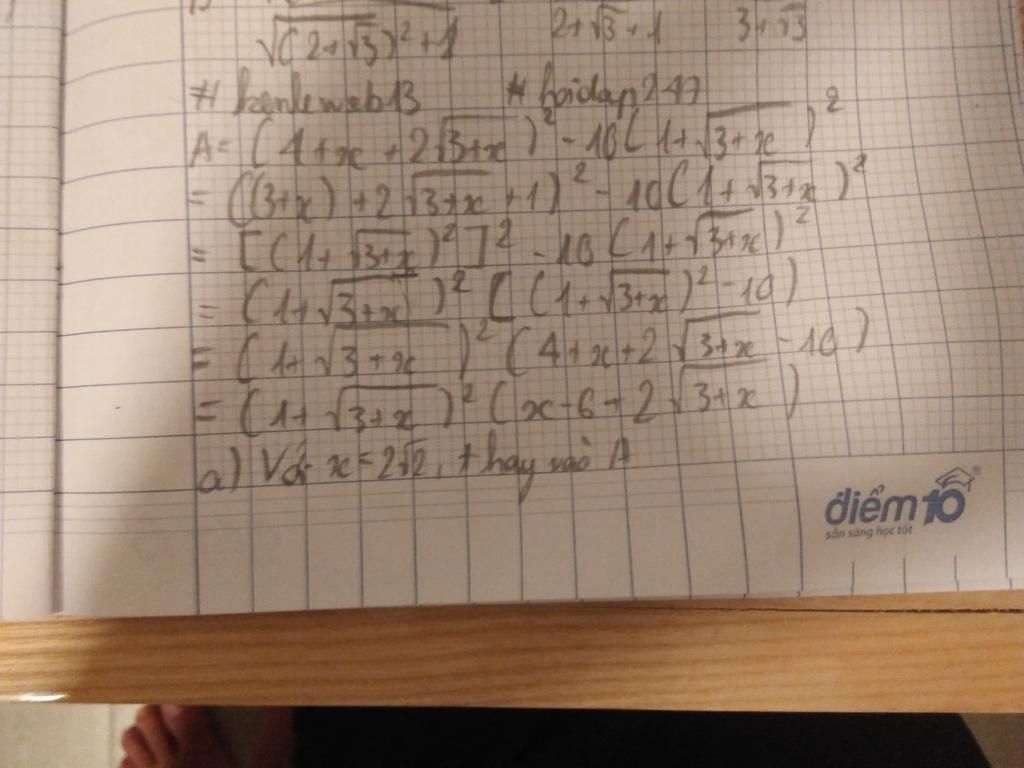 √((2+√3)²+1) 2+√3+1 3+√3
# kenleweb13 # hoidap247
A= (4+x+2√(3+x))² - 10(1+√(3+x))²
= ((3+x)+2√(3+x)+1)² - 10(1+√(3+x))²
= [(1+√(3+x))²]² - 10(1+√(3+x))²
= (1+√(3+x))² [(1+√(3+x))² - 10)
= (1+√(3+x))² (4+x+2√(3+x) - 10)
= (1+√(3+x))² (x-6+2√(3+x))
a) Với x=2√2, thay vào A
điểm 10
sẵn sàng học tốt